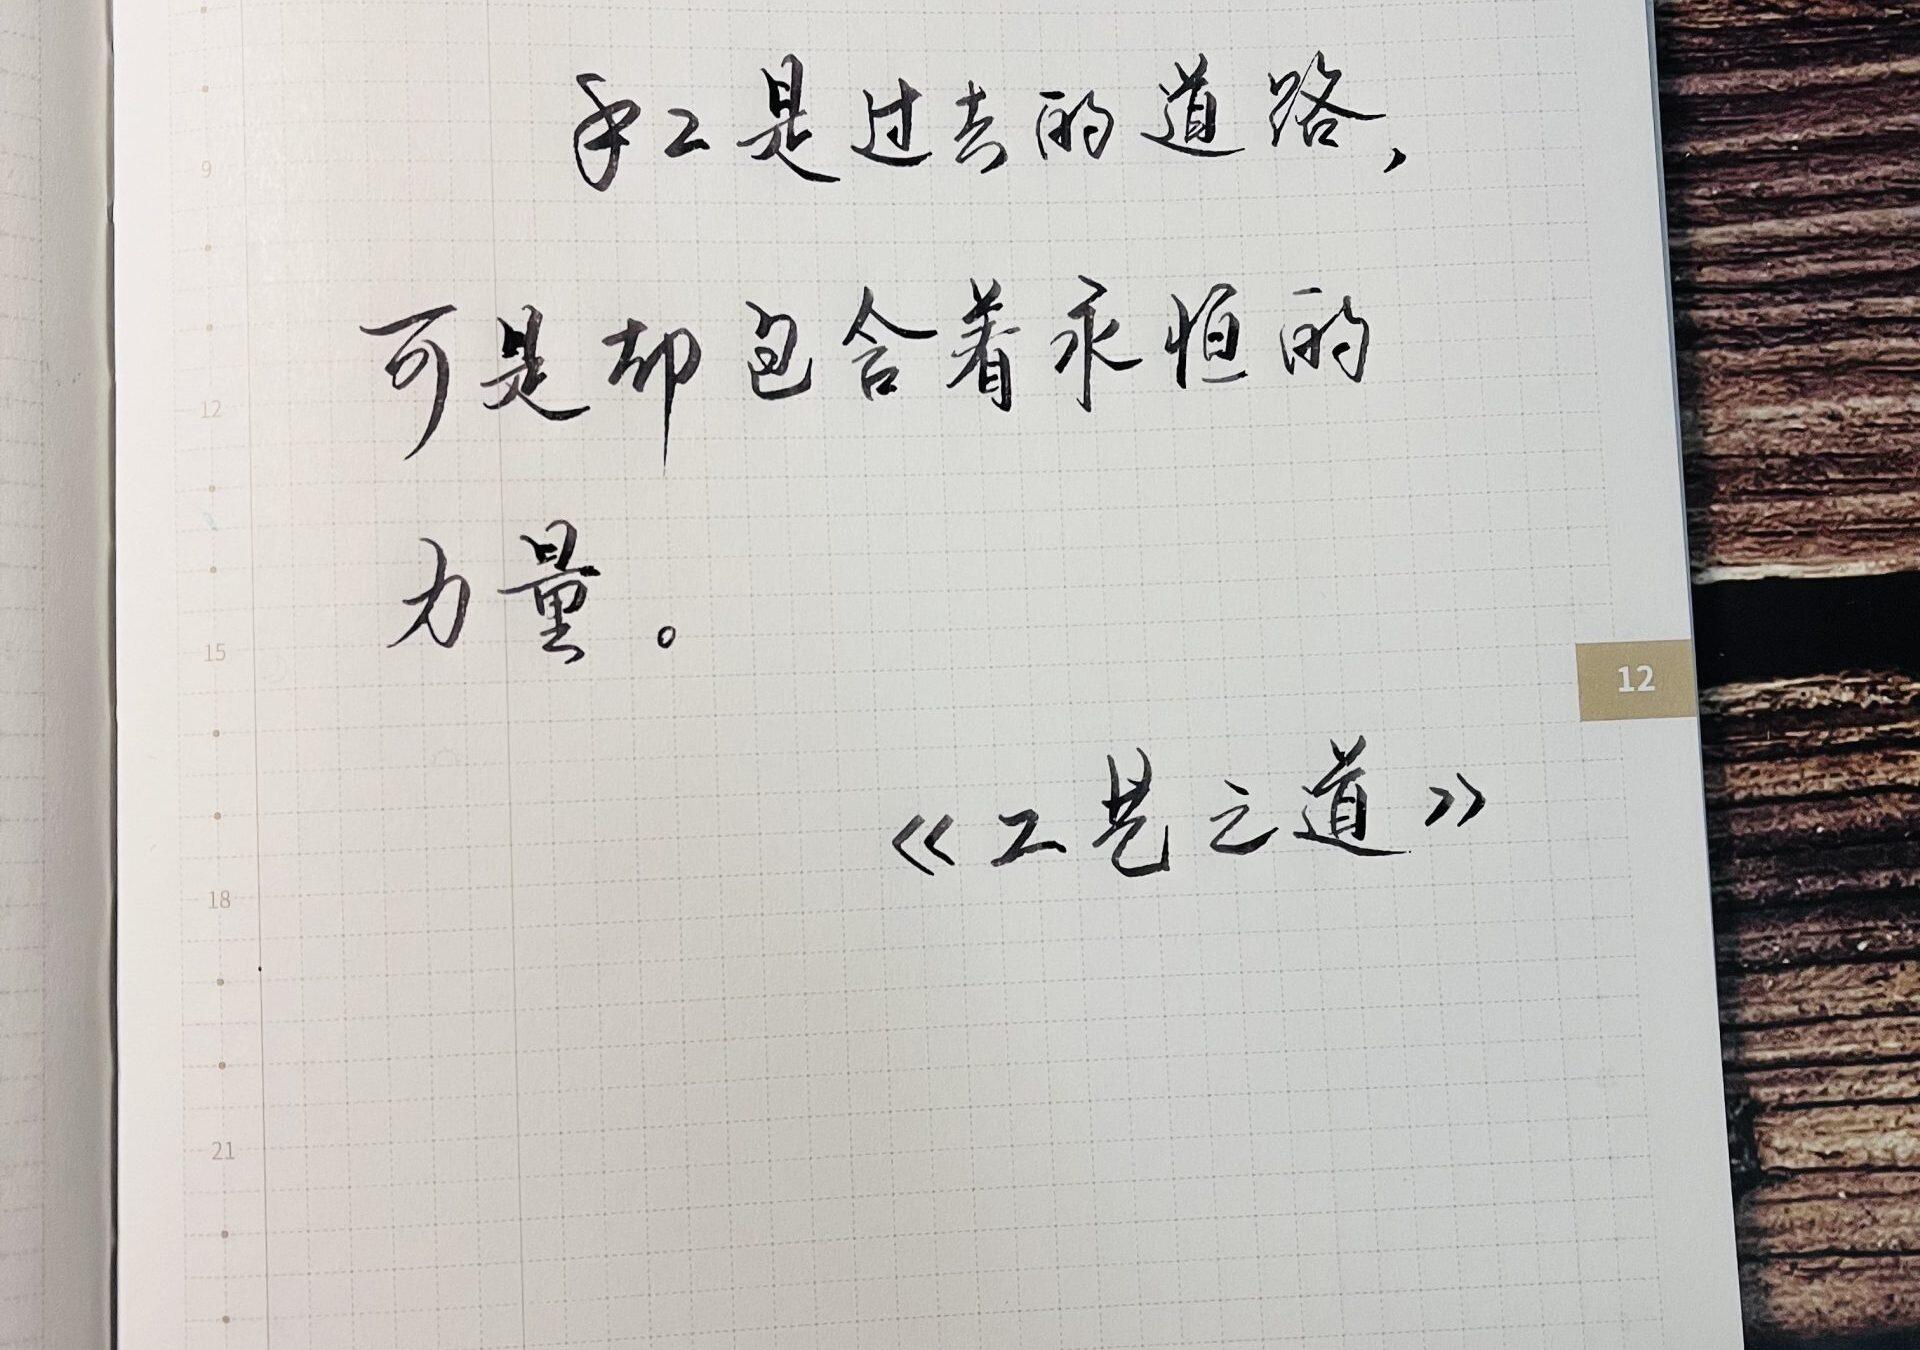 9
手工是过去的道路，
12
可是却包含着永恒的
15
力量。
12
《工艺之道》
18
21